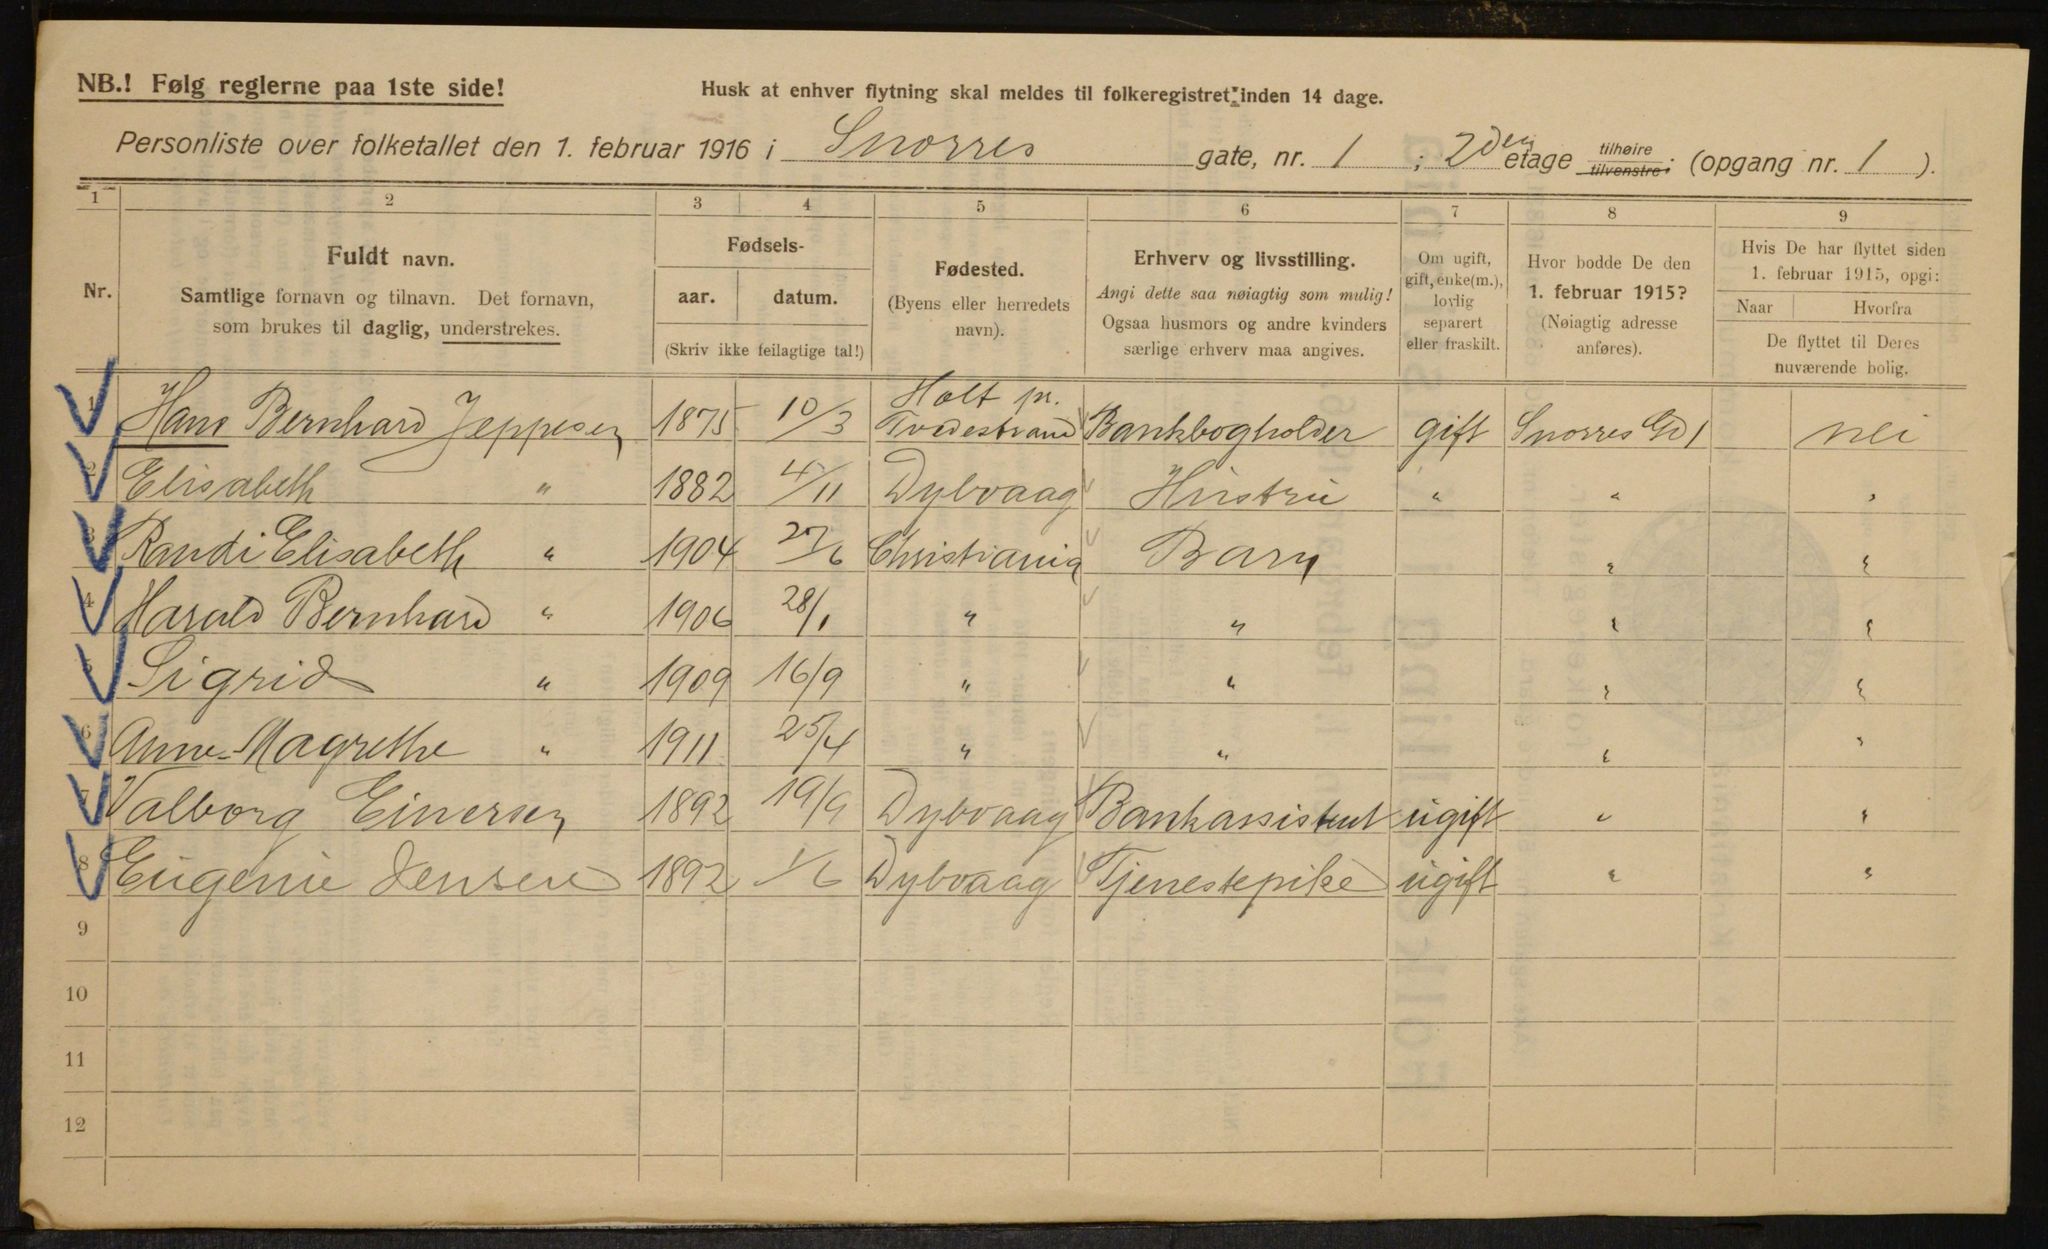 NB.! Følg reglerne paa 1ste side!
Husk at enhver flytning skal meldes til folkeregistret inden 14 dage.
Personliste over folketallet den 1. februar 1916 i Snorres gate, nr. 1 ; 2den etage tilhøire tilvenstre; (opgang nr. 1 ).
1 2 3 4 5 6 7 8 9
Nr.
Fuldt navn.
Samtlige fornavn og tilnavn. Det fornavn,
som brukes til daglig, understrekes.
Fødsels-
aar. datum.
(Skriv ikke feilagtige tal!)
Fødested.
(Byens eller herredets
navn).
Erhverv og livsstilling.
Angi dette saa nøiagtig som mulig!
Ogsaa husmors og andre kvinders
særlige erhverv maa angives.
Om ugift,
gift, enke(m.),
lovlig
separert
eller fraskilt.
Hvor bodde De den
1. februar 1915?
(Nøiagtig adresse
anføres).
Hvis De har flyttet siden
1. februar 1915, opgi:
Naar Hvorfra
De flyttet til Deres
nuværende bolig.
1 Hans Bernhard Jeppesen 1875 10/3 Holt pr. Tvedestrand Bankbogholder gift Snorres Gd 1 nei
2 Elisabeth " 1882 4/11 Dybvaag Hustru " " "
3 Randi Elisabeth " 1904 27/6 Christiania Barn " "
4 Harald Bernhard " 1906 28/1 " " " "
5 Sigrid " 1909 16/9 " " " "
6 Anne-Magrethe " 1911 25/4 " " " "
7 Valborg Einersen 1892 19/9 Dybvaag Bankassistent ugift " "
8 Eugenie Jensen 1892 1/6 Dybvaag Tjenestepike ugift " "
9
10
11
12